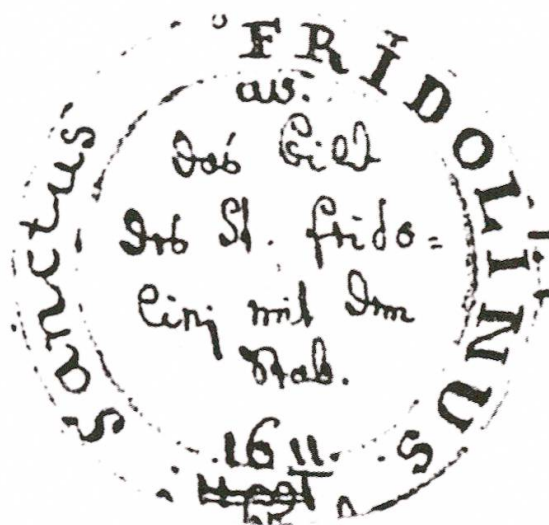 Sanctus FRIDOLINUS.
av.
das Bild
des St. Frido=
linj mit dem
Stab.
.16 11.